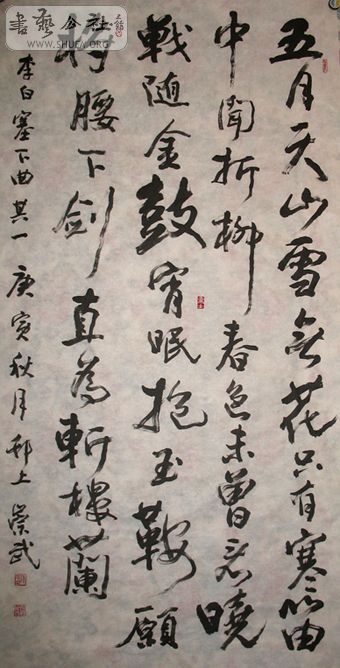 五月天山雪無花只有寒笛
中聞折柳春色未曾看曉
戰随金鼓宵眠抱玉鞍願
將腰下劍直為斬樓蘭
李白塞下曲其一 庚寅秋月邗上崇武
書藝公社
WWW.SHUFA.ORG